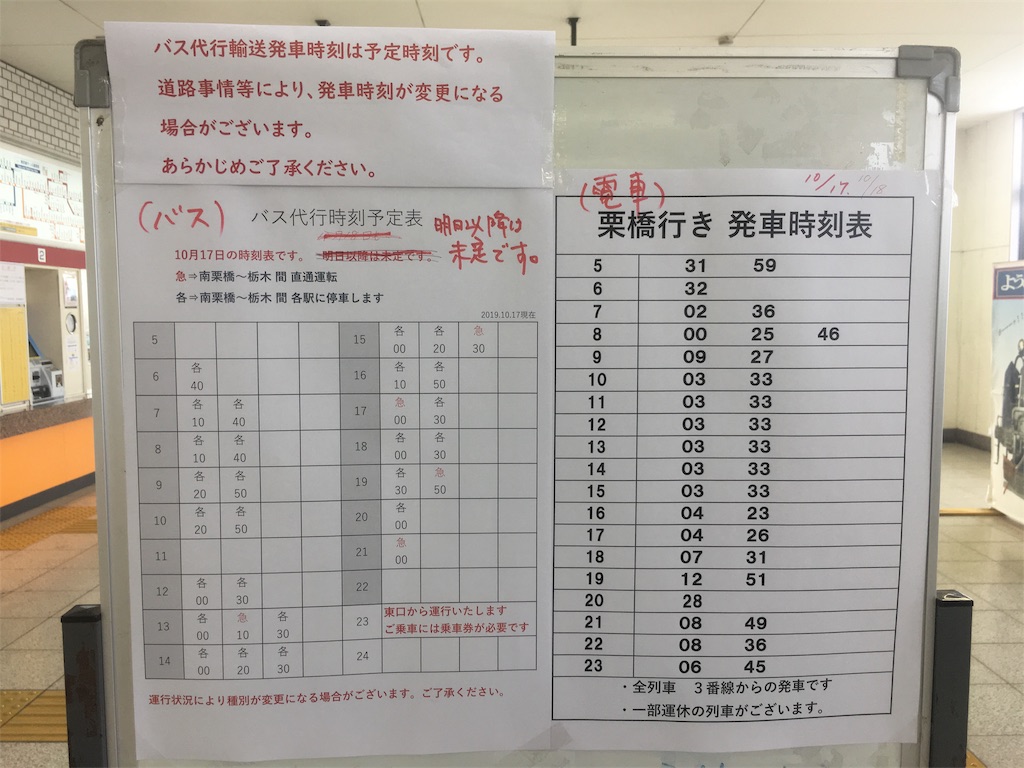 バス代行輸送発車時刻は予定時刻です。
道路事情等により、発車時刻が変更になる
場合がございます。
あらかじめご了承ください。
(バス)
バス代行時刻予定表
明日以降は
未定です。
10月17日の時刻表です。 明日以降は未定です。
急⇒南栗橋～栃木 間 直通運転
各⇒南栗橋～栃木 間 各駅に停車します
2019.10.17現在
5
6 各40
7 各10 各40
8 各10 各40
9 各20 各50
10 各20 各50
11
12 各00 各30
13 各00 急10 各30
14 各00 各20 各30
15 各00 各20 急30
16 各10 各50
17 急00 各30
18 各00 各30
19 各30 急50
20 各00
21 急00
22
23 東口から運行いたします
ご乗車には乗車券が必要です
24
運行状況により種別が変更になる場合がございます。ご了承ください。
(電車)
10/17. 10/18
栗橋行き 発車時刻表
5 31 59
6 32
7 02 36
8 00 25 46
9 09 27
10 03 33
11 03 33
12 03 33
13 03 33
14 03 33
15 03 33
16 04 23
17 04 26
18 07 31
19 12 51
20 28
21 08 49
22 08 36
23 06 45
・全列車 3番線からの発車です
・一部運休の列車がございます。
2
よう